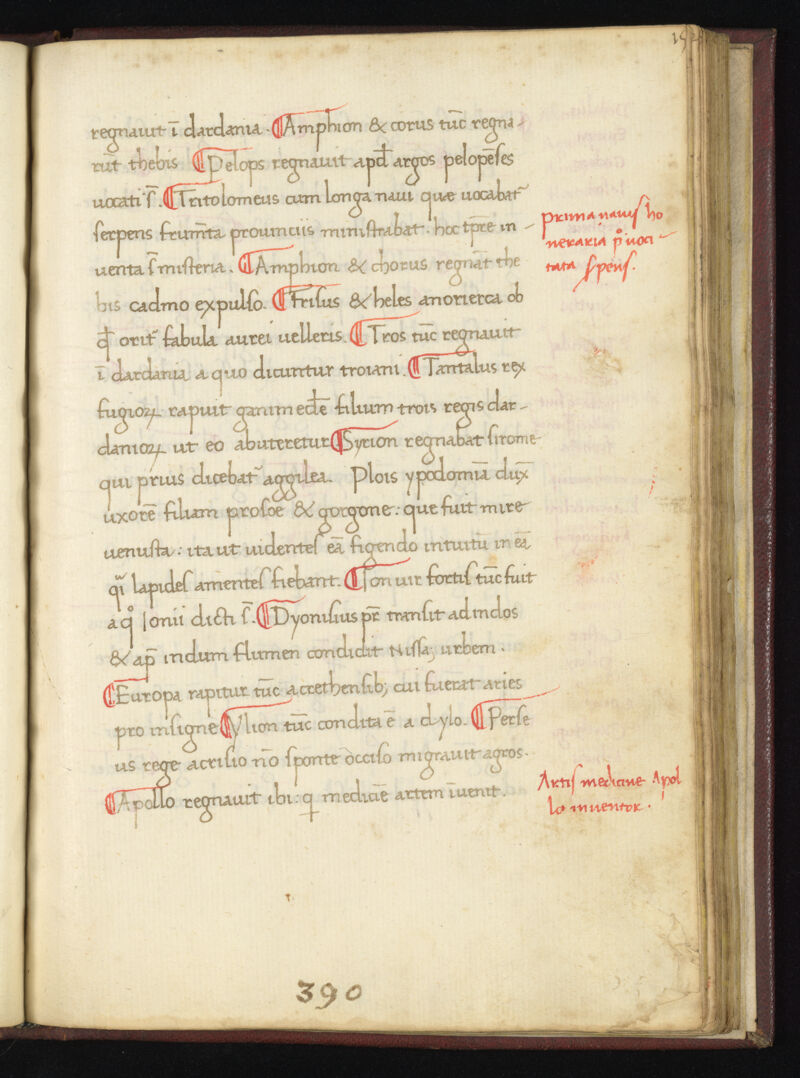 regnauit ī dardania. ¶Amphion & corus tūc regna-
rūt thebis ¶Pelops regnauit apđ argos pelopēses
uocati s̄. ¶Tritolomeus cum longa naui quæ uocabat᷑
serpens frum̄ta prouinciis ministrabat. hoc tp̄re in-
uenta s̄ misteria. ¶Amphion & chorus regnāt the
bis cadmo expulso. ¶Frisus & heles a nouerca ob
qđ orit᷑ fabula aurei uelleris. ¶Tros tūc regnauit
ī dardania a quo dicuntur troiani. ¶Tantalus rex
fugioꝝ rapuit ganimedē filium trois regis dar-
danioꝝ ut eo abuteretur ¶Syrion regnabat sirome
qui prius dicebat᷑ aggilea. Plois ypodomiā dux̄
uxorē filiam prosoe & gorgone: que fuit mire
uenusta: ita ut uidentes eā figendo intuitū in eā
qͣi lapides amentes fiebant. ¶Ion uir fortis tūc fuit
a qͦ Ionii dicti s̄. ¶Dyonisius pr̄ transit ad indos
& ap̄ indum flumen condidit Nissaʒ urbem.
¶Europa rapitur tūc a crethensibꝫ cui fuerat aries
pro insigne ¶Ylion tūc condita ē a dylo. ¶Perse
us rege acrisio nō sponte occiso migrauit agros.
¶Apollo regnauit ibi: q medicīe artem īuenit.
prima nauis ho
neraria pͦ uoci-
tata s̱pens.
Artis medicine Apol
lo inuentor.
390